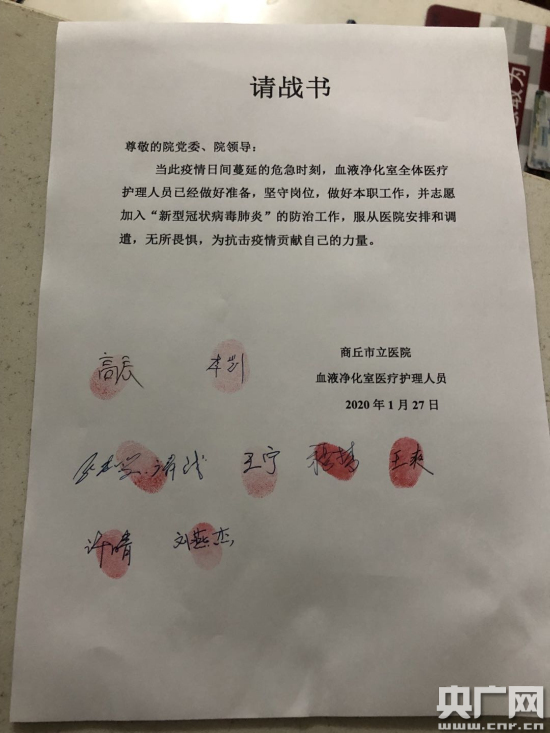 请战书
尊敬的院党委、院领导：
当此疫情日间蔓延的危急时刻，血液净化室全体医疗
护理人员已经做好准备，坚守岗位，做好本职工作，并志愿
加入“新型冠状病毒肺炎”的防治工作，服从医院安排和调
遣，无所畏惧，为抗击疫情贡献自己的力量。
商丘市立医院
血液净化室医疗护理人员
2020年1月27日
高辰
请战 王宁 王爽
许晴 刘燕杰
央广网
www.cnr.cn